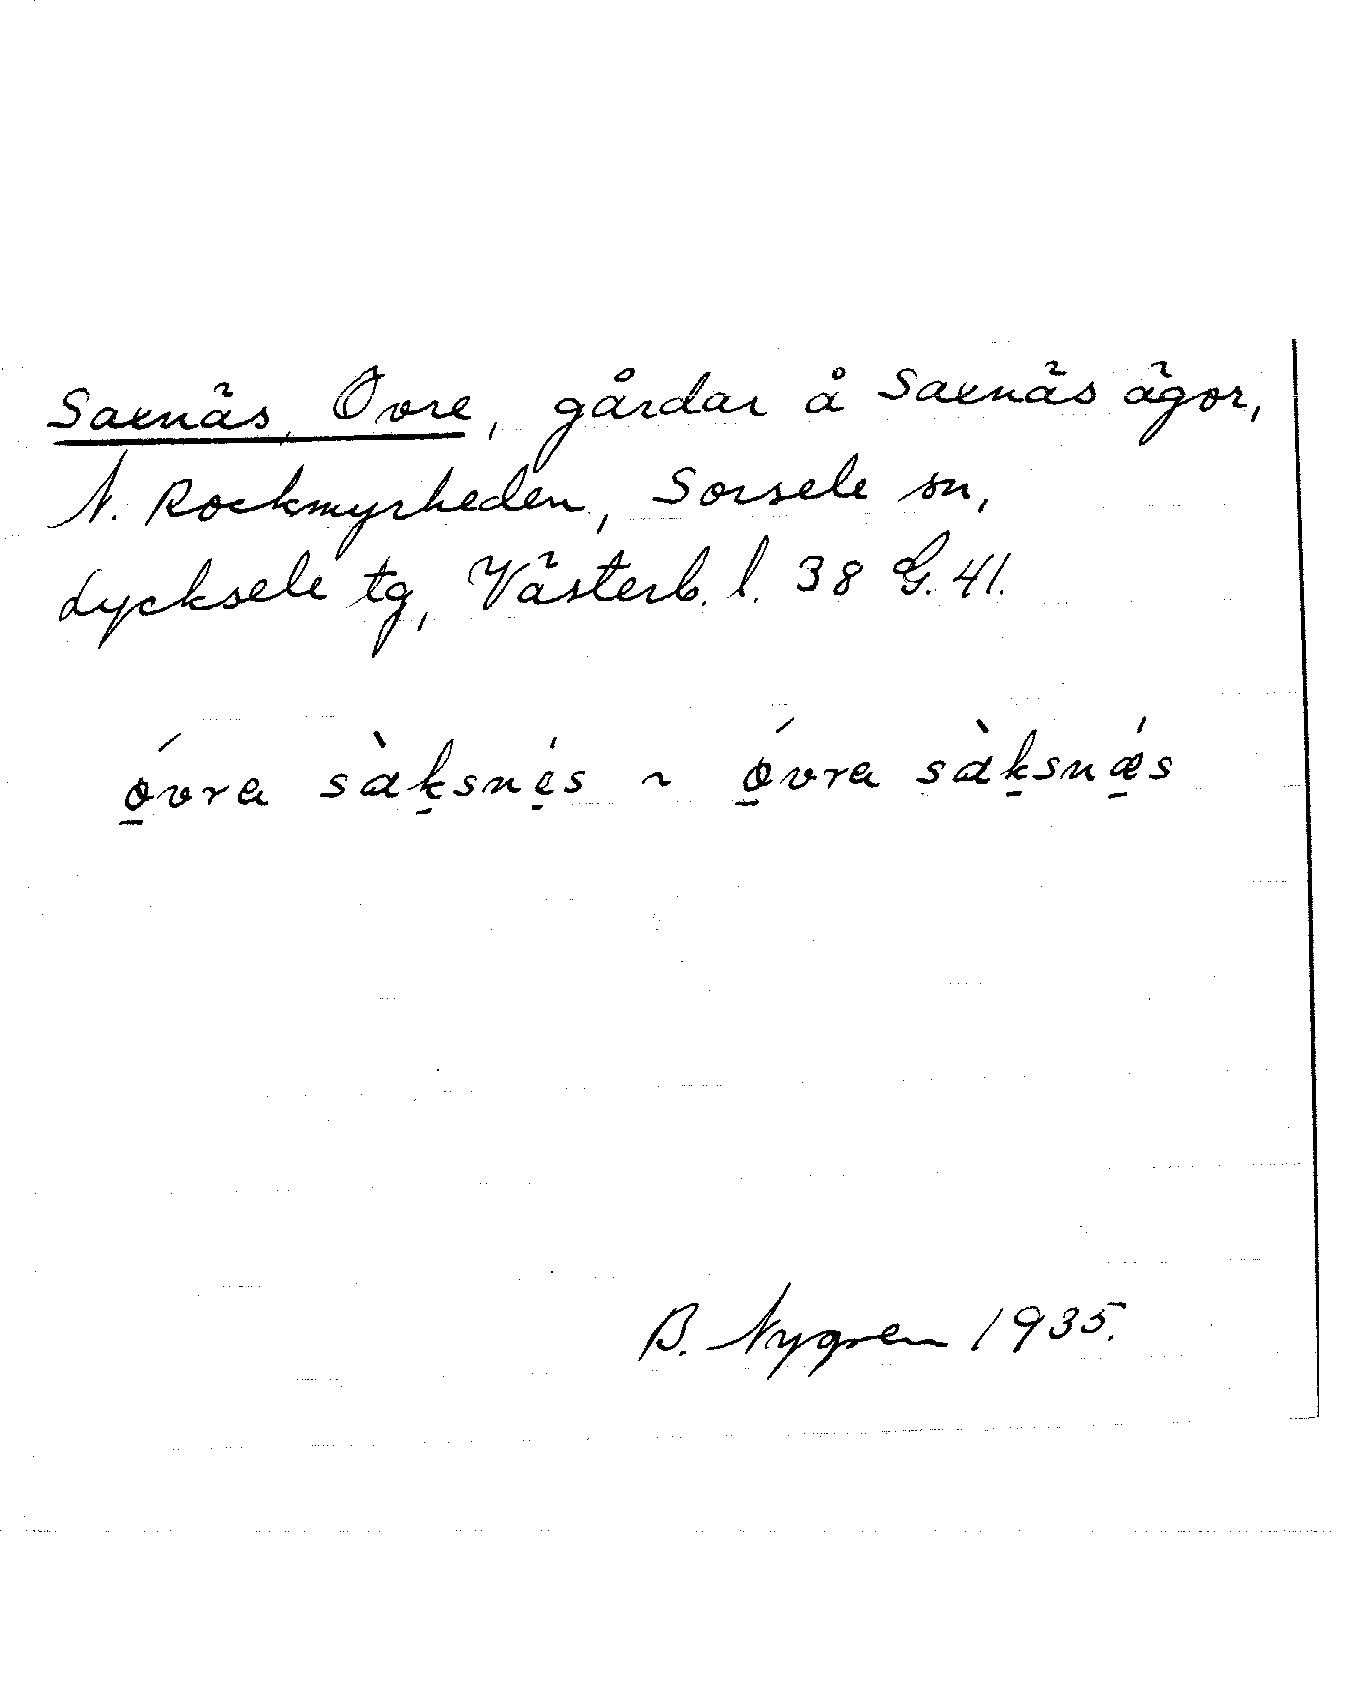 Saxnäs, Övre, gårdar å Saxnäs ägor,
N. Rockmyrheden, Sorsele sn,
Lycksele tg, Västerb. l. 38 G. 41.
ǿ̱vra sàḵsné̱s ~ ǿ̱vra sàḵsnǽ̱s
B. Nygren 1935.